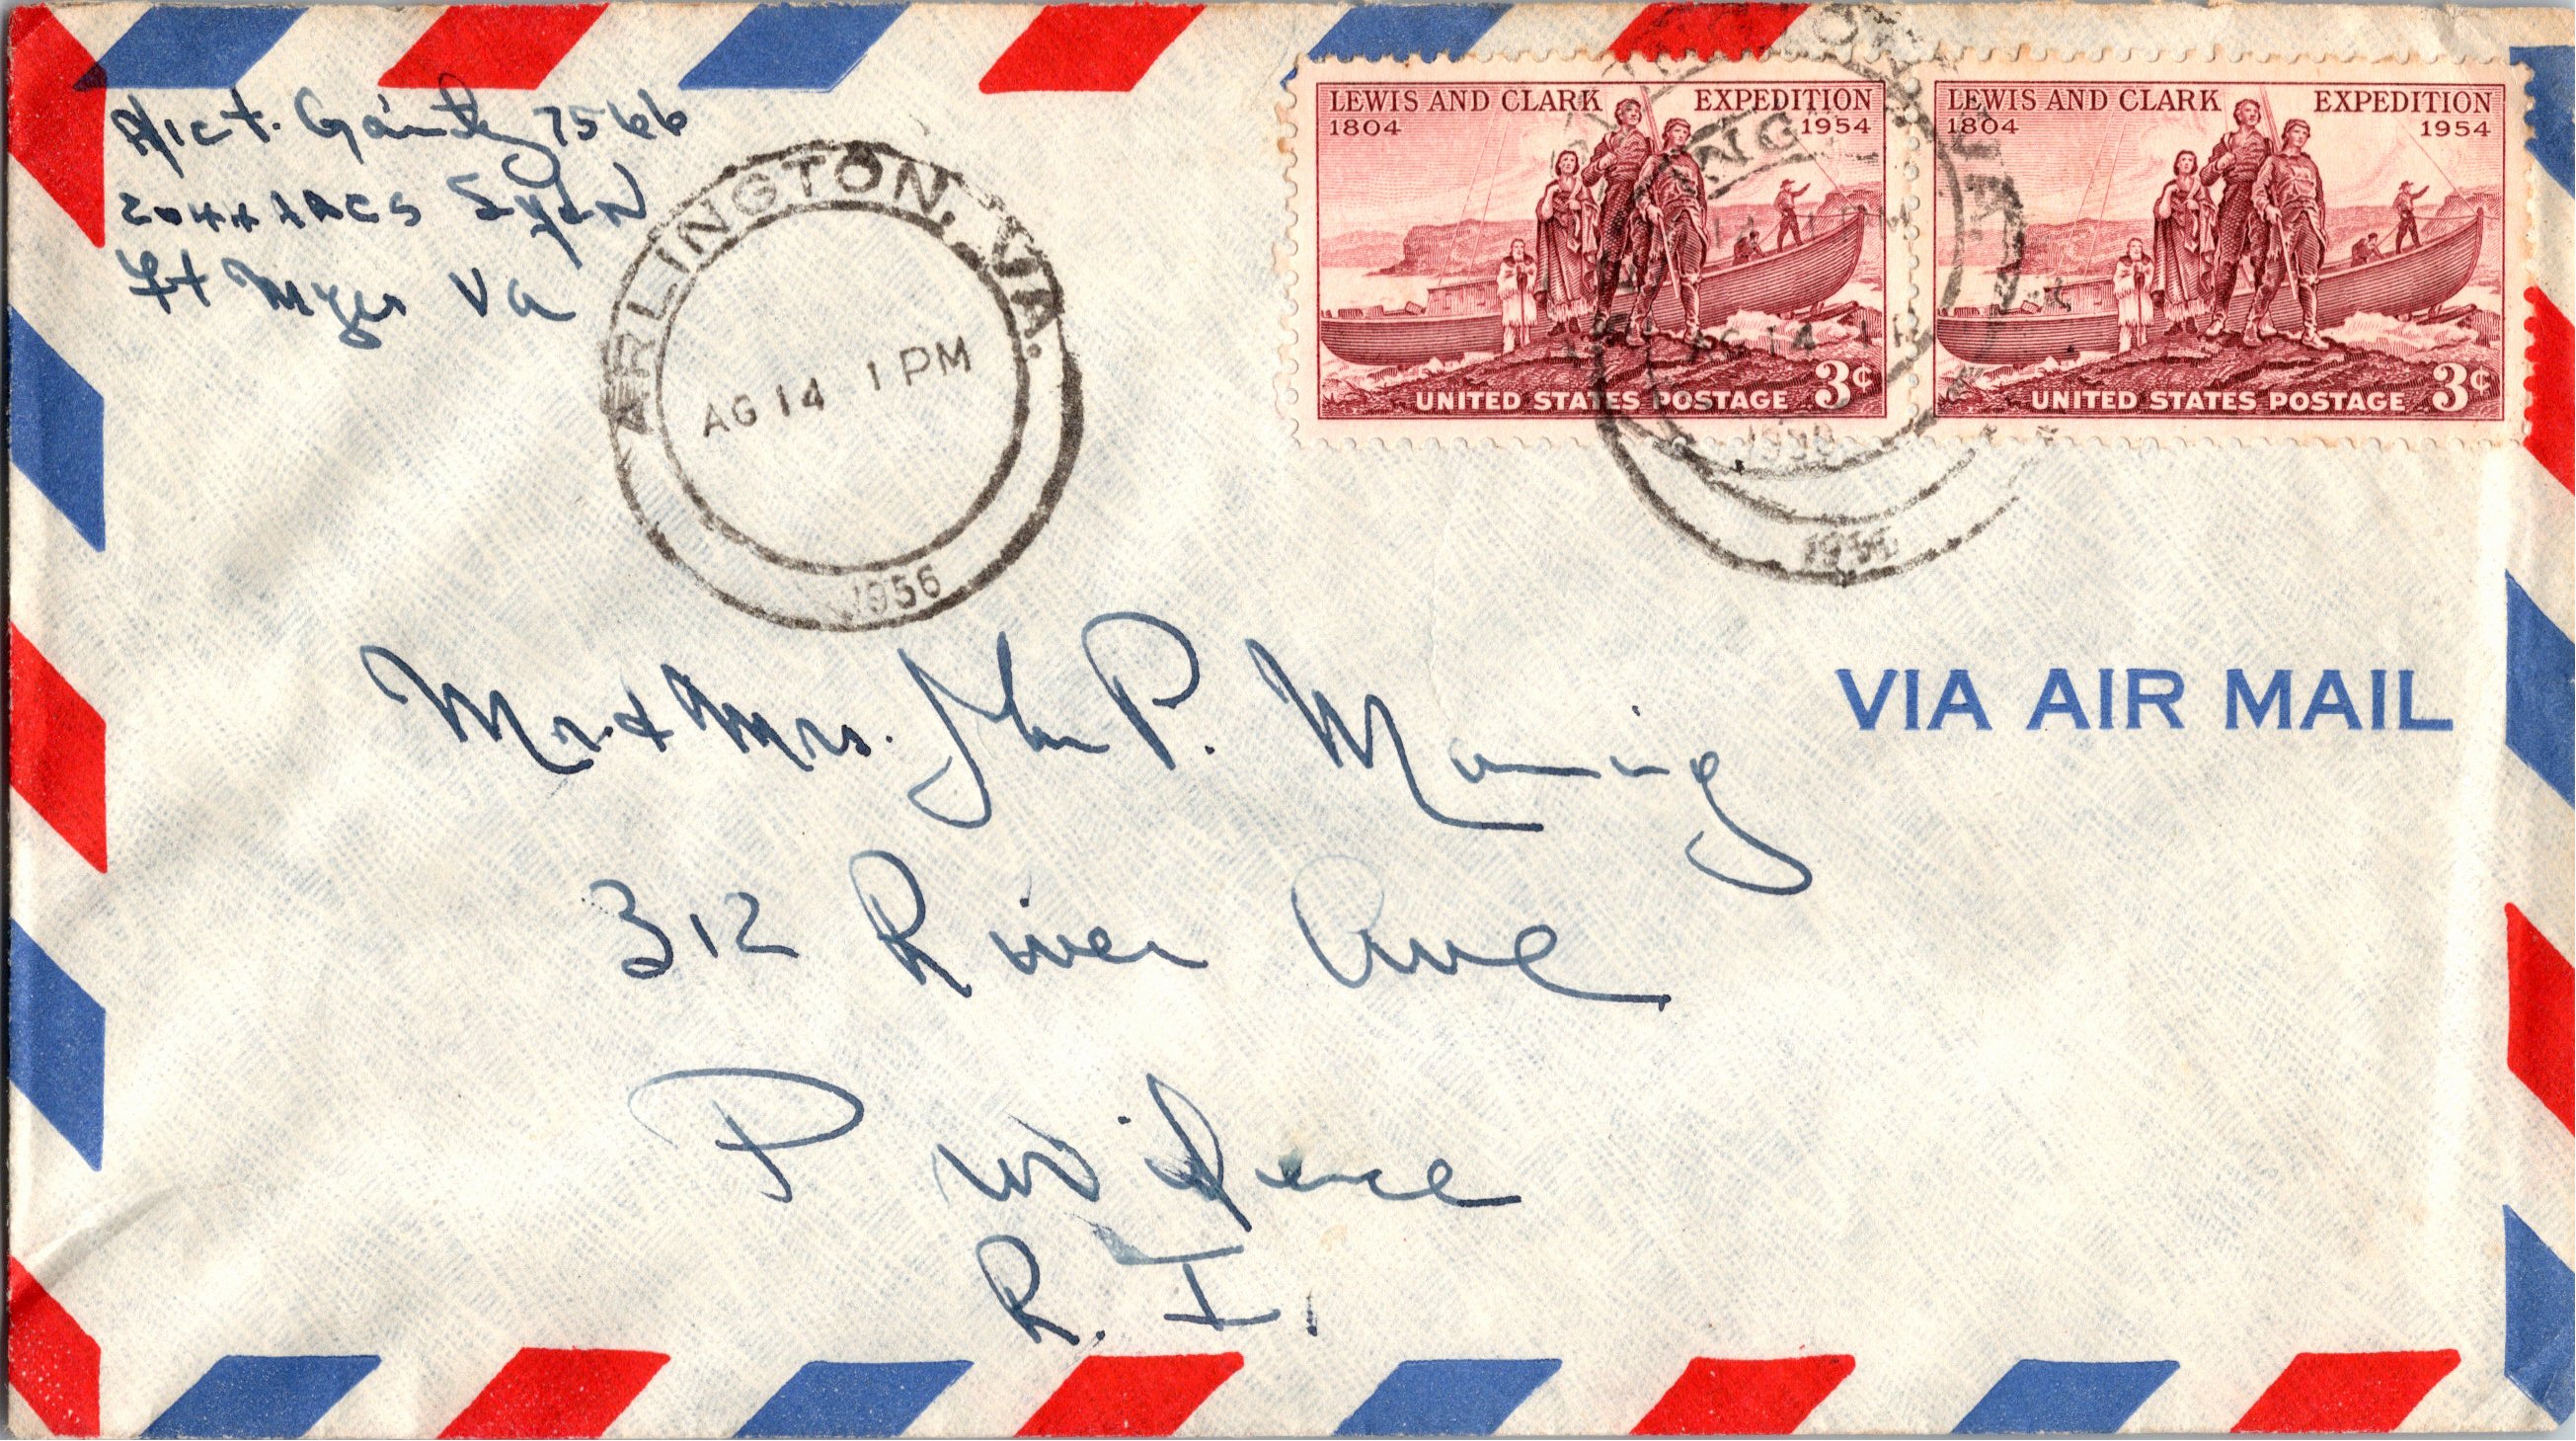 7566
Ft Myer Va
ARLINGTON, VA.
AG 14 1 PM
1956
LEWIS AND CLARK EXPEDITION
1804 1954
3¢
UNITED STATES POSTAGE
LEWIS AND CLARK EXPEDITION
1804 1954
3¢
UNITED STATES POSTAGE
AG 14 1 P
VIA AIR MAIL
Mr. & Mrs. John P. Manning
312 River Ave
Providence
R. I.